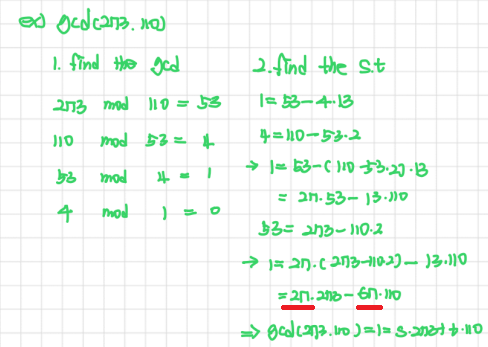 ex) gcd(273, 110)
1. find the gcd
273 mod 110 = 53
110 mod 53 = 4
53 mod 4 = 1
4 mod 1 = 0
2. find the s.t
1=53-4·13
4=110-53·2
→ 1=53-(110-53·2)·13
= 27·53-13·110
53=273-110·2
→ 1=27·(273-110·2)-13·110
=27·273-67·110
⇒ gcd(273,110)=1=s·273+t·110